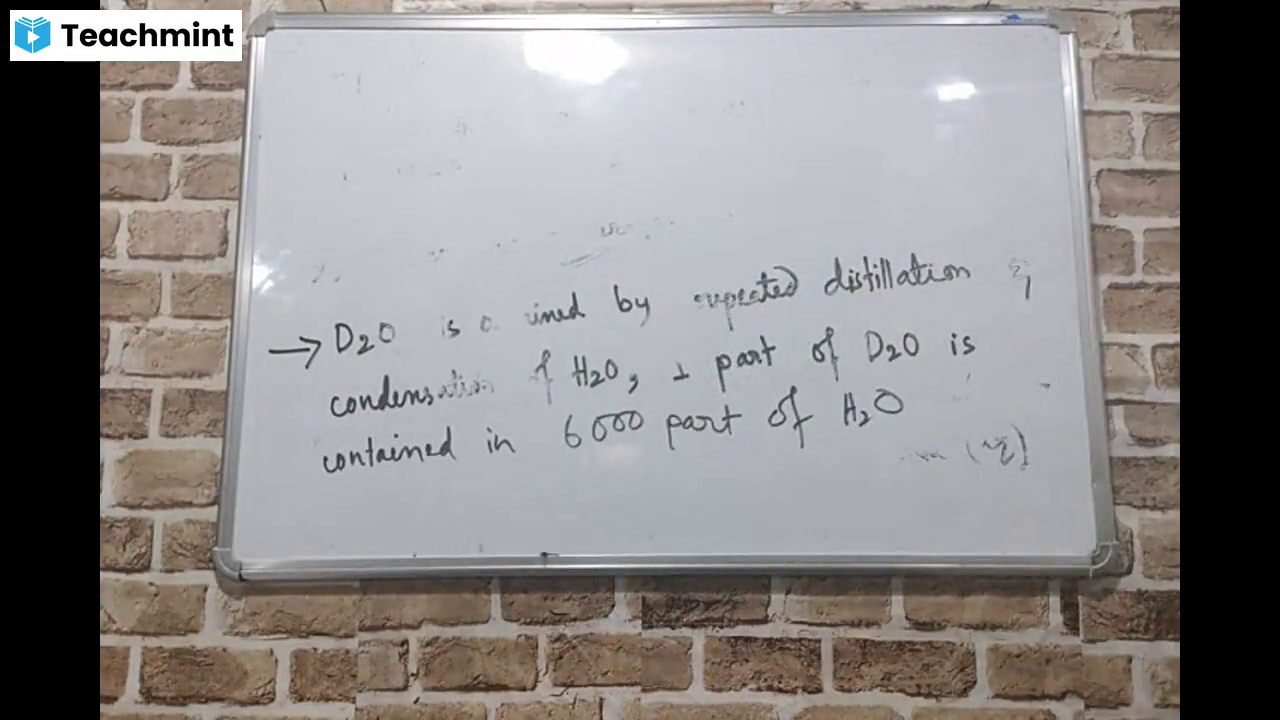 Teachmint
→ D₂O is o ined by repeated distillation &
condensation of H₂O, 1 part of D₂O is
contained in 6000 part of H₂O